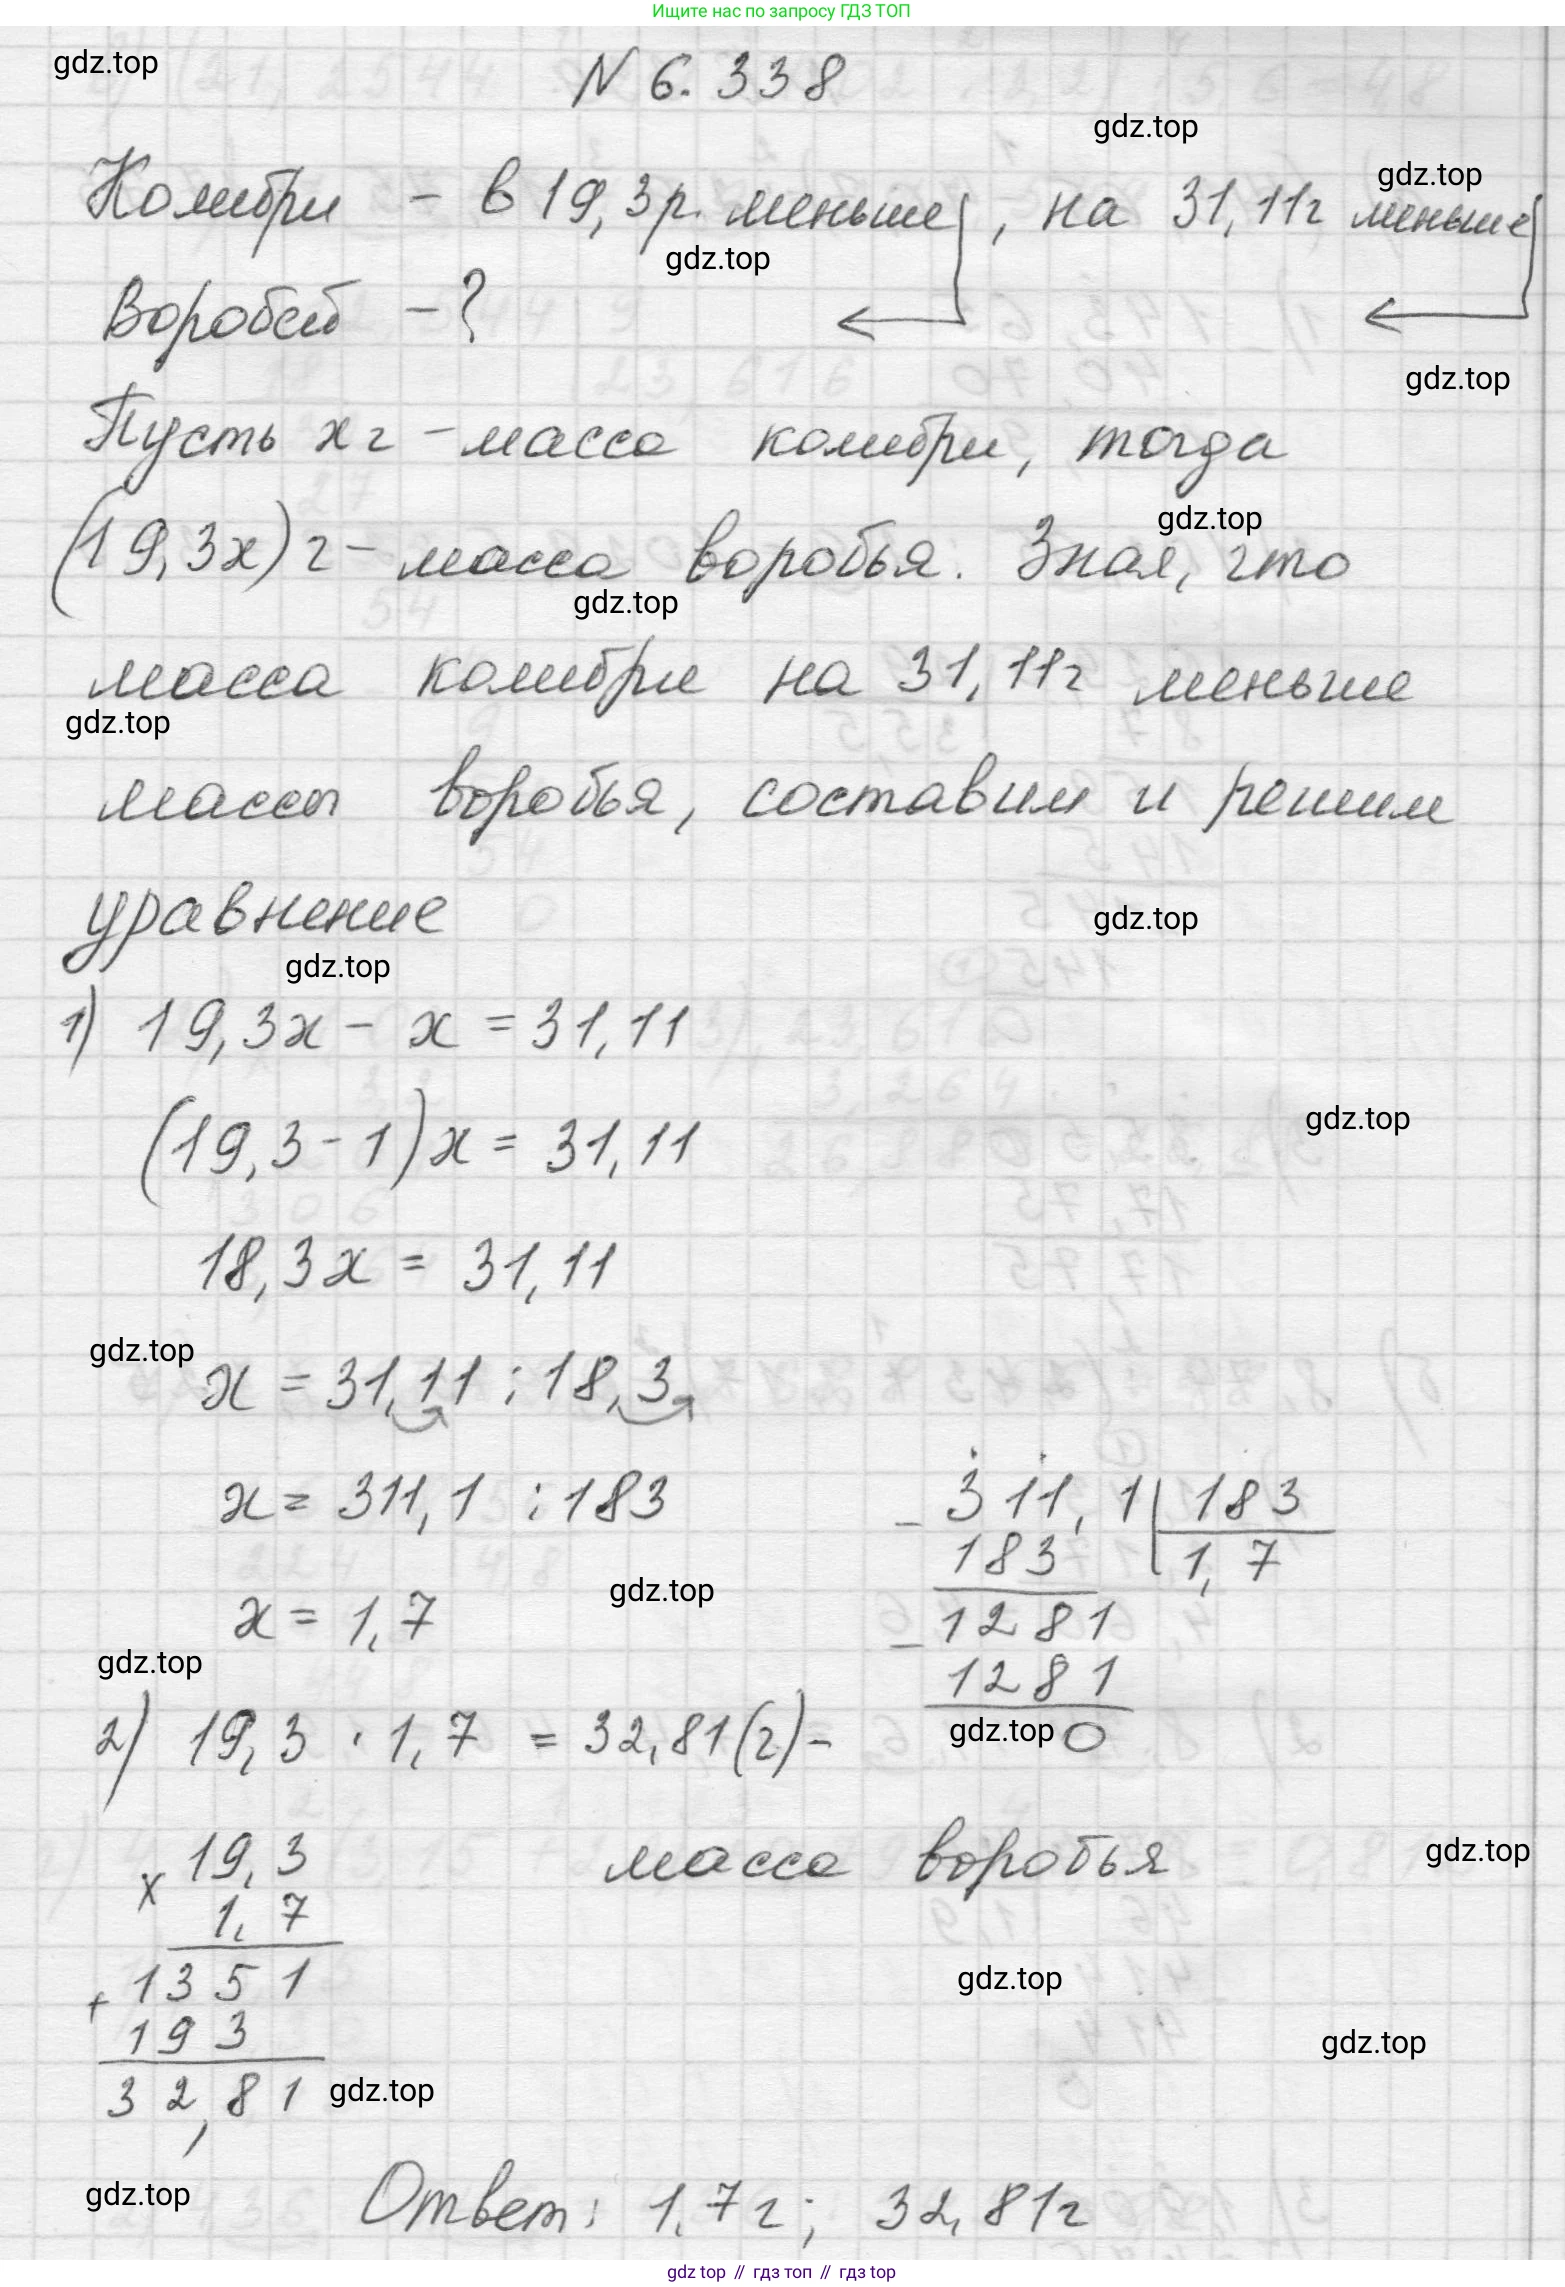 Ищите нас по запросу ГДЗ ТОП
gdz.top
N 6.338
gdz.top
gdz.top
Колибри - в 19,3 р. меньше, на 31,11 г меньше
gdz.top
Воробей - ?
gdz.top
Пусть x г - масса колибри, тогда
gdz.top
(19,3x) г - масса воробья. Зная, что
gdz.top
масса колибри на 31,11 г меньше
gdz.top
массы воробья, составим и решим
уравнение
gdz.top
gdz.top
1) 19,3x - x = 31,11
gdz.top
(19,3 - 1)x = 31,11
18,3x = 31,11
gdz.top
x = 31,11 : 18,3
x = 311,1 : 183
x = 1,7
gdz.top
- 311,1 | 183
183 1,7
- 1281
1281
0
gdz.top
gdz.top
2) 19,3 · 1,7 = 32,81 (г) -
масса воробья
gdz.top
x 19,3
1,7
+ 1351
193
32,81
gdz.top
gdz.top
gdz.top
gdz.top
Ответ: 1,7 г; 32,81 г
gdz.top // гдз топ // гдз top